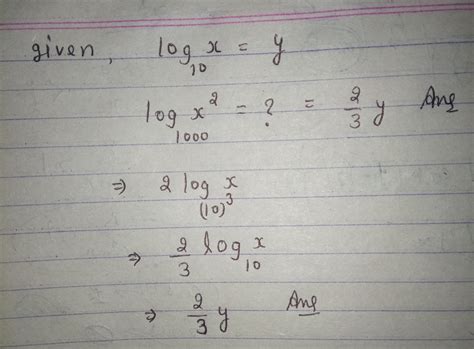 given, log₁₀ x = y
log₁₀₀₀ x² = ? = 2/3 y Ans
⇒ 2 log₍₁₀₎³ x
⇒ 2/3 log₁₀ x
⇒ 2/3 y Ans